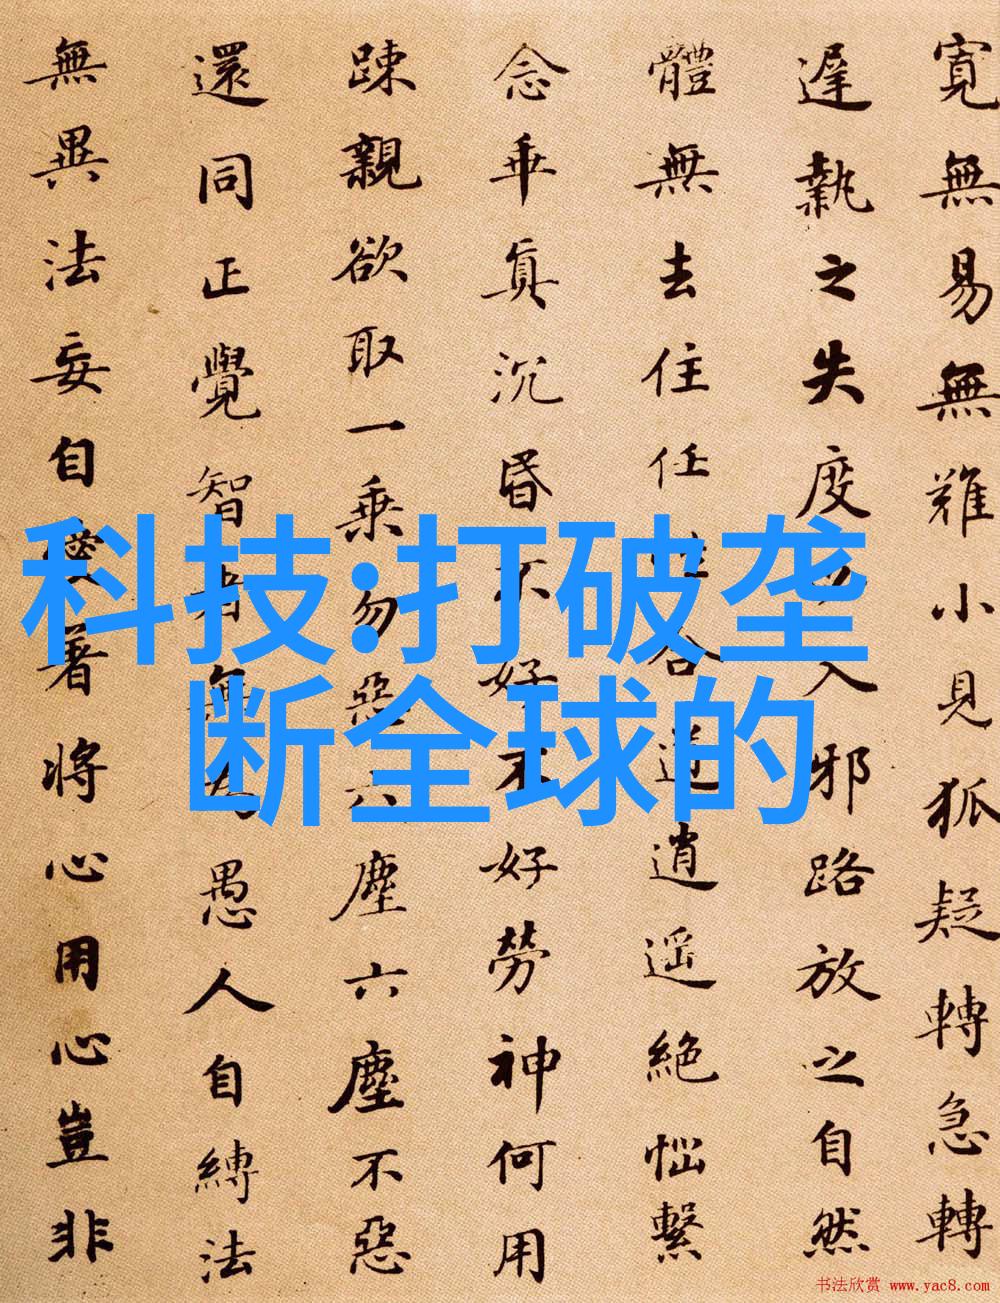 寬無易無難小見狐疑轉急轉
遲執之失度入邪路放之自然
體無去住任合道逍遥絕惱繫
念乖真沉昏不好不好勞神何用
踈親欲取一乘勿惡六塵六塵不惡
還同正覺智者無為愚人自縛法
無異法妄自愛著將心用心豈非
科技:打破垄
断全球的
书法欣赏 www.yac8.com